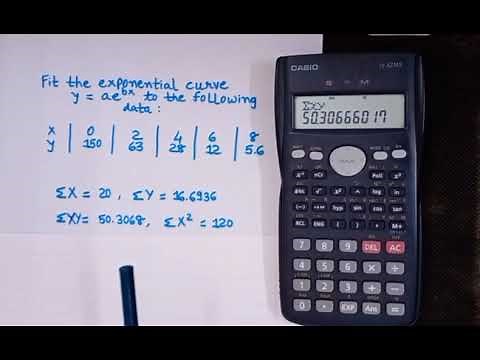 Fit the exponential curve
y = ae^bx to the following
data:
x | 0 | 2 | 4 | 6 | 8
y | 150 | 63 | 28 | 12 | 5.6
ΣX = 20, ΣY = 16.6936
ΣXY = 50.3068, ΣX² = 120
CASIO
S-V.P.A.M.
Σxy
50.30666017
SHIFT ALPHA REPLAY MODE ON
x³
Pol(
x² ^ log ln
(-) hyp sin cos tan
RCL ENG ( ) , M+
7 8 9 DEL AC
4 5 6 × ÷
1 2 3 + −
0 . EXP Ans =